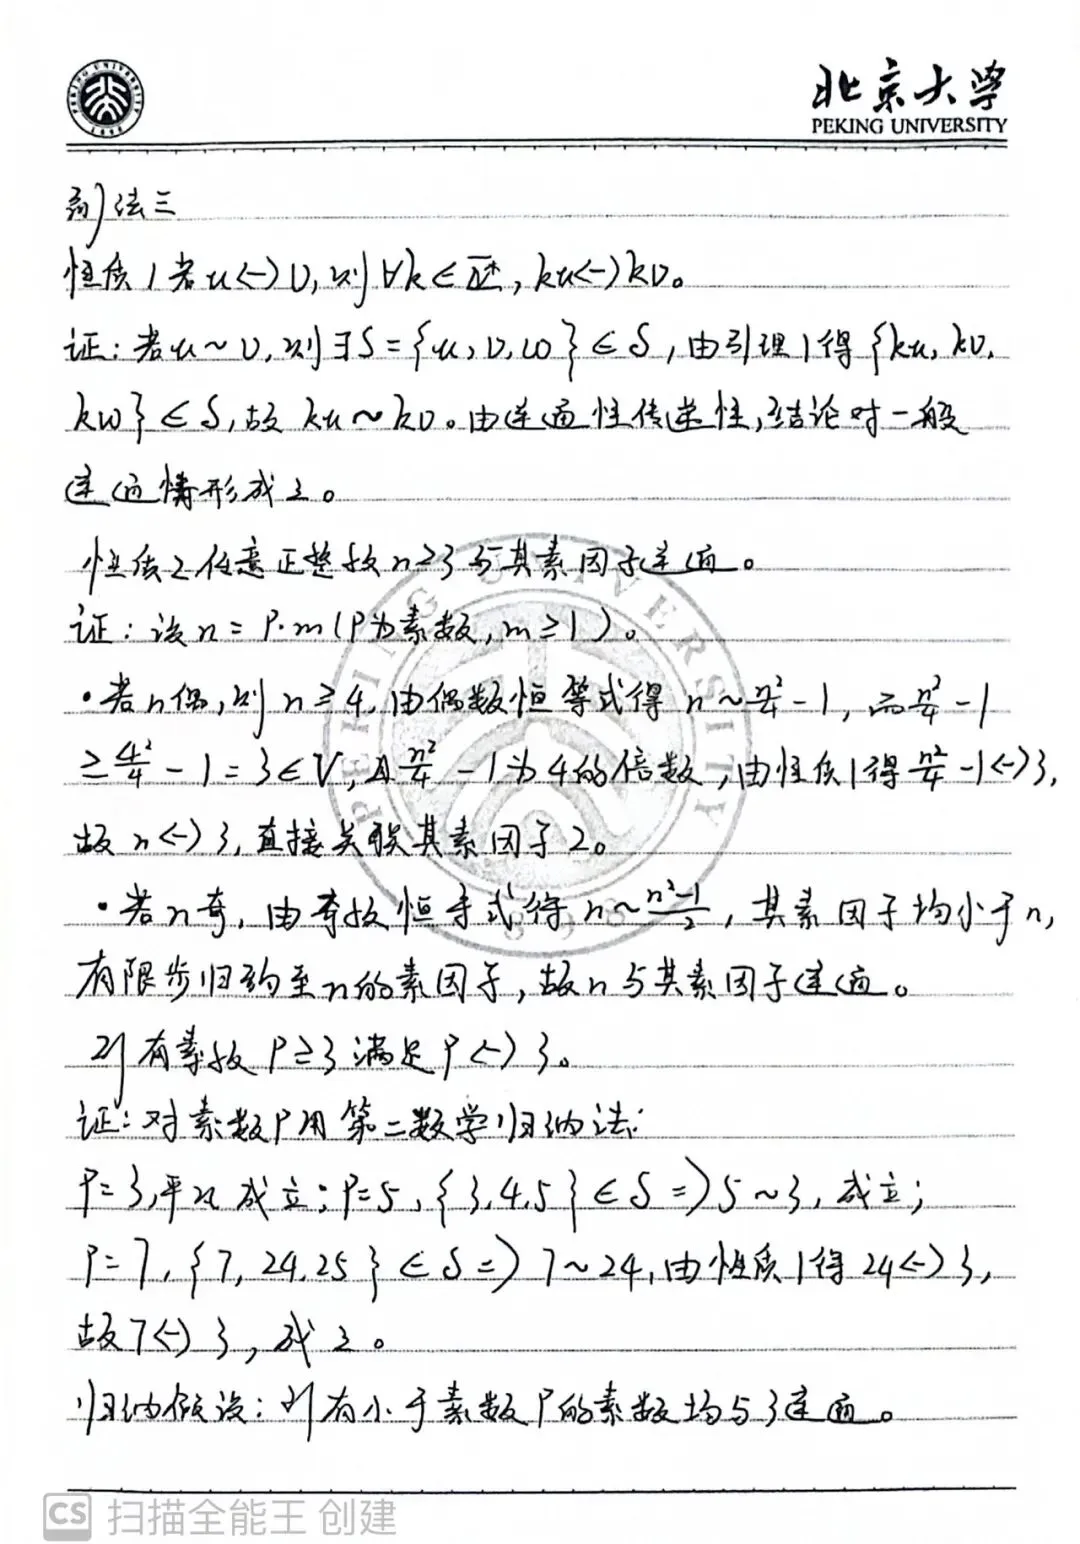 北京大学
PEKING UNIVERSITY
法三
性质1 若u<->v,则∀k∈Z⁺,ku<->kv。
证:若u~v,则∃S={u,v,w}∈S,由引理1得{ku,kv,
kw}∈S,故ku~kv。由连通性传递性,结论对一般
连通情形成立。
性质2 任意正整数n≥3与其素因子连通。
证:设n=p·m(p为素数,m≥1)。
·若n偶,则n≥4,由偶数恒等式得 n~n²/4-1,而n²/4-1
≥4²/4-1=3∈V,且n²/4-1为4的倍数,由性质1得n²/4-1<->3,
故n<->3,直接关联其素因子2。
·若n奇,由奇数恒等式得n~(n²-1)/2,其素因子均小于n,
有限步归约至n的素因子,故n与其素因子连通。
所有素数p≥3满足p<->3。
证:对素数p用第二数学归纳法:
p=3,平凡成立;p=5,{3,4,5}∈S=>5~3,成立;
p=7,{7,24,25}∈S=>7~24,由性质1得24<->3,
故7<->3,成立。
归纳假设:所有小于素数p的素数均与3连通。
CS 扫描全能王 创建